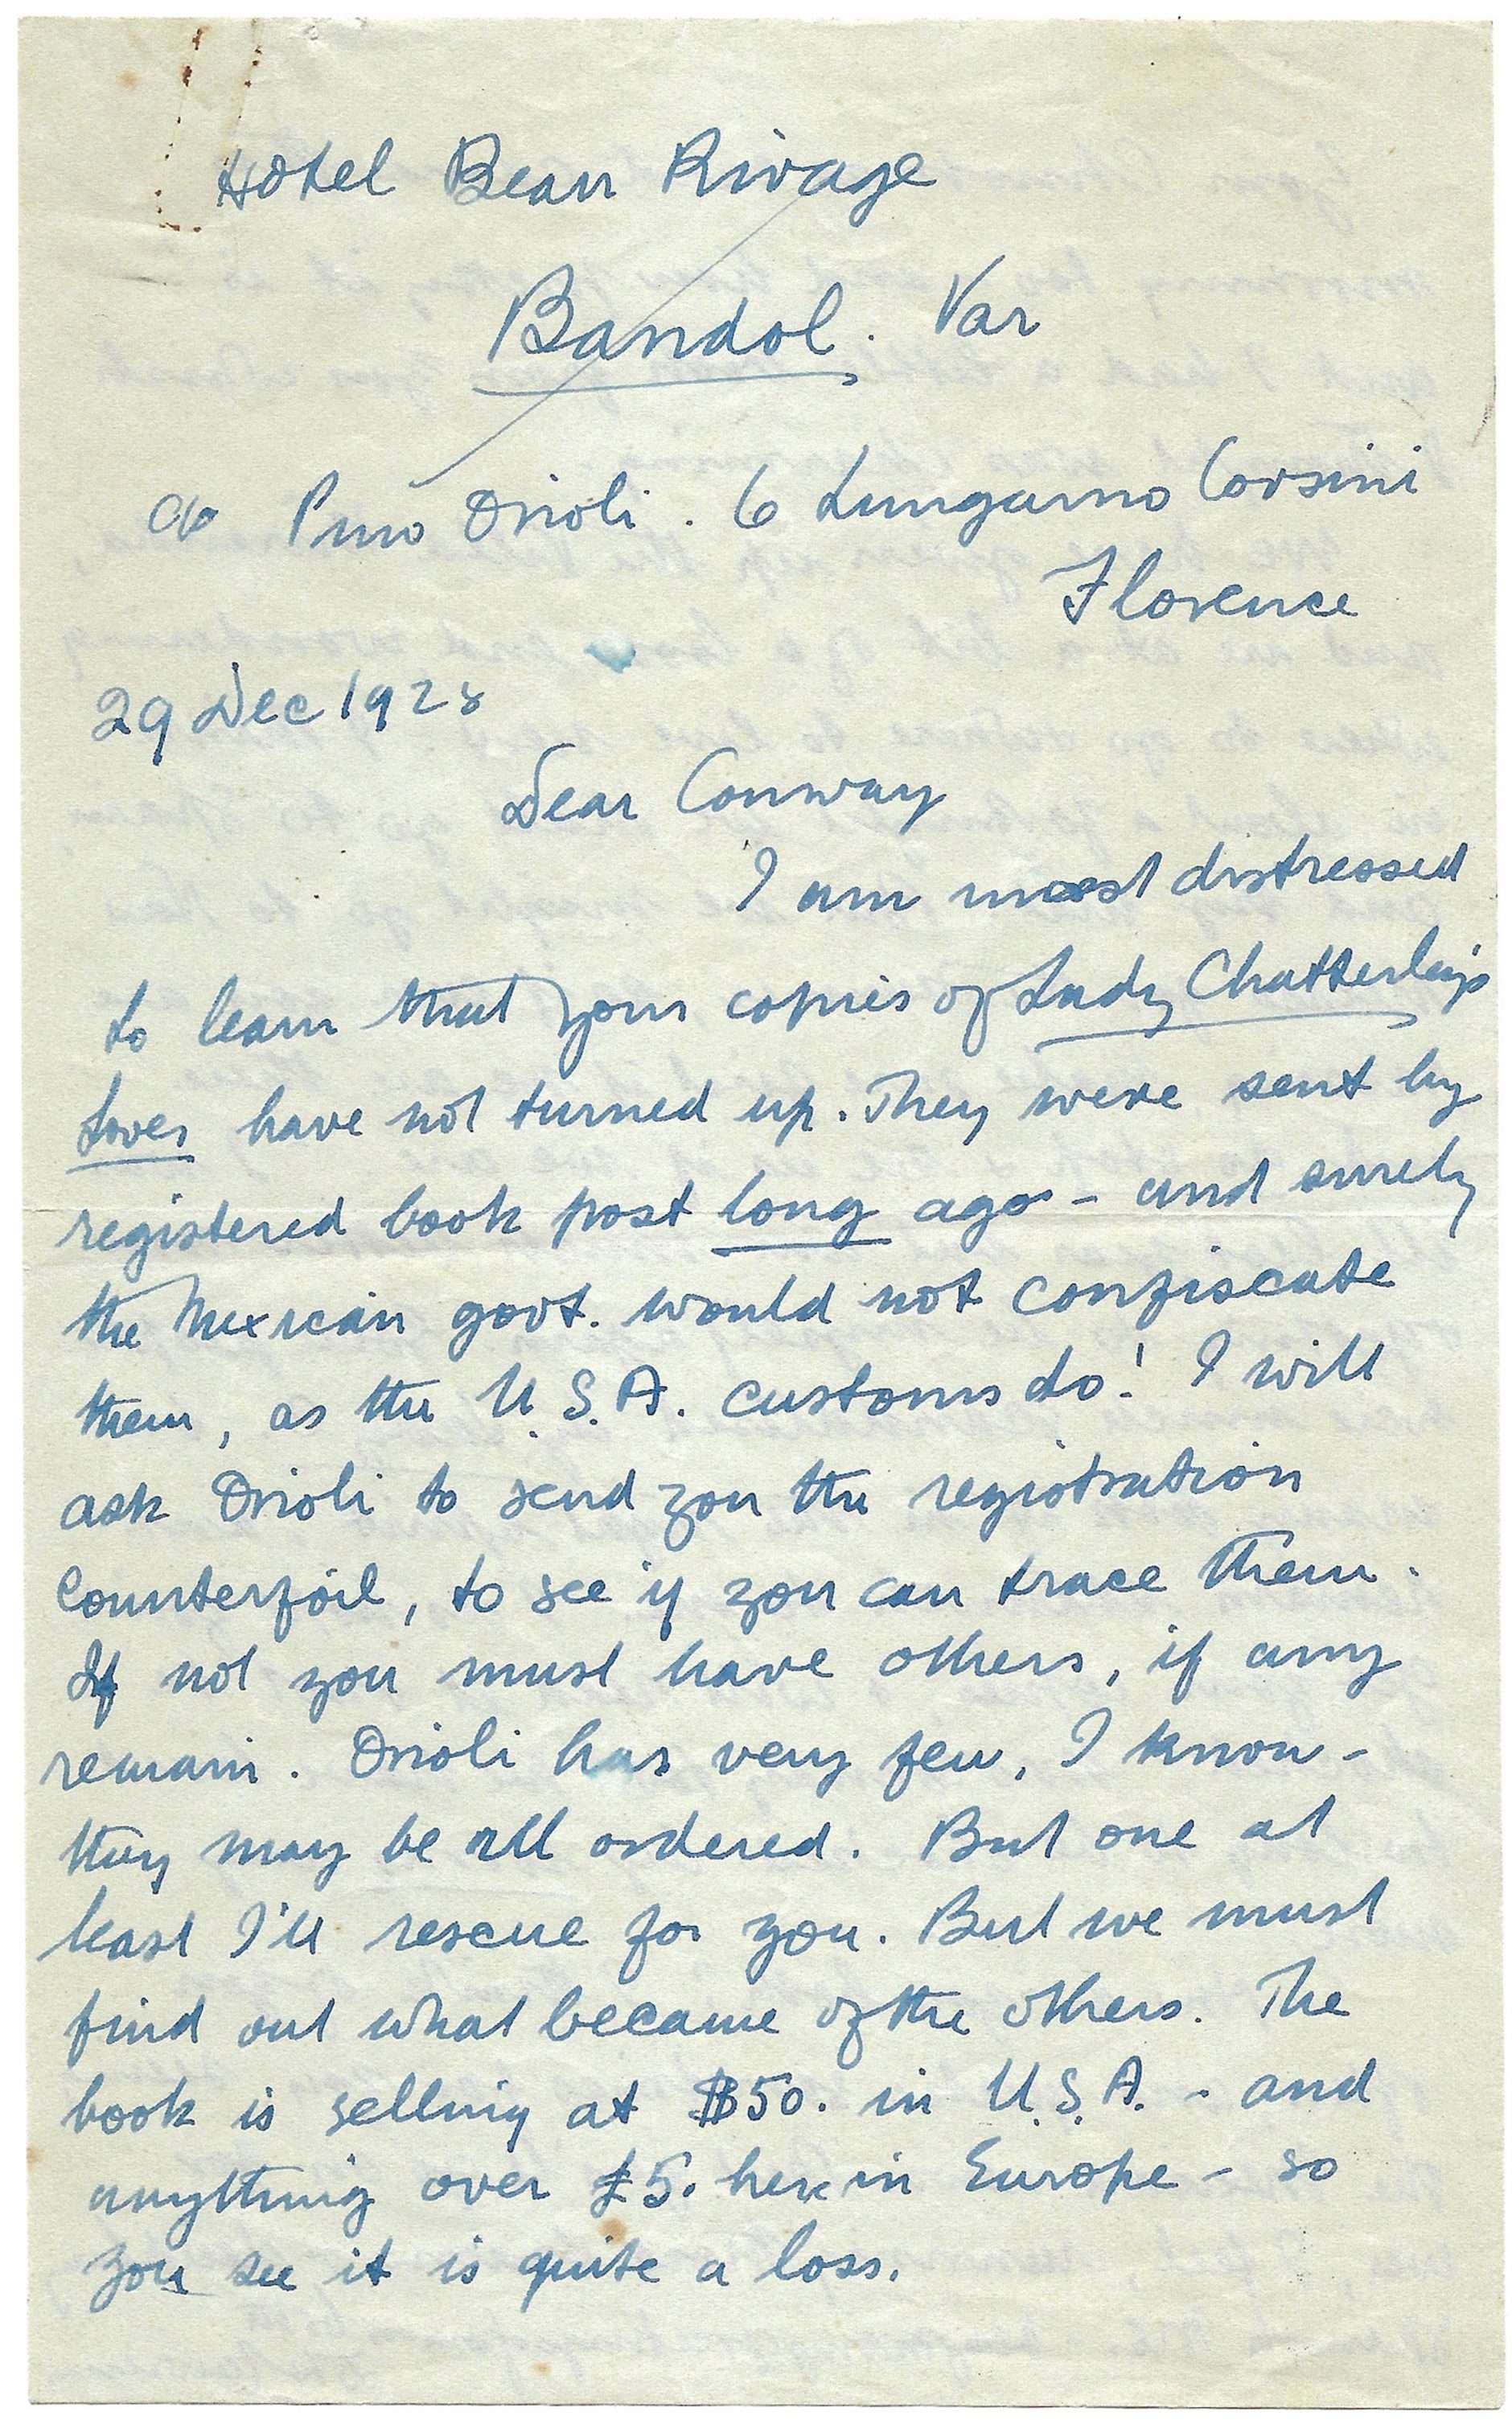 Hotel Beau Rivage
Bandol. Var
c/o Pino Orioli. 6 Lungarno Corsini
Florence
29 Dec 1928
Dear Conway
I am most distressed
to learn that your copies of Lady Chatterley's
Lover have not turned up. They were sent by
registered book post long ago – and surely
the Mexican govt. would not confiscate
them, as the U.S.A. customs do! I will
ask Orioli to send you the registration
counterfoil, to see if you can trace them.
If not you must have others, if any
remain. Orioli has very few, I know –
they may be all ordered. But one at
least I'll rescue for you. But we must
find out what became of the others. The
book is selling at $50. in U.S.A. – and
anything over £5. here in Europe – so
you see it is quite a loss.